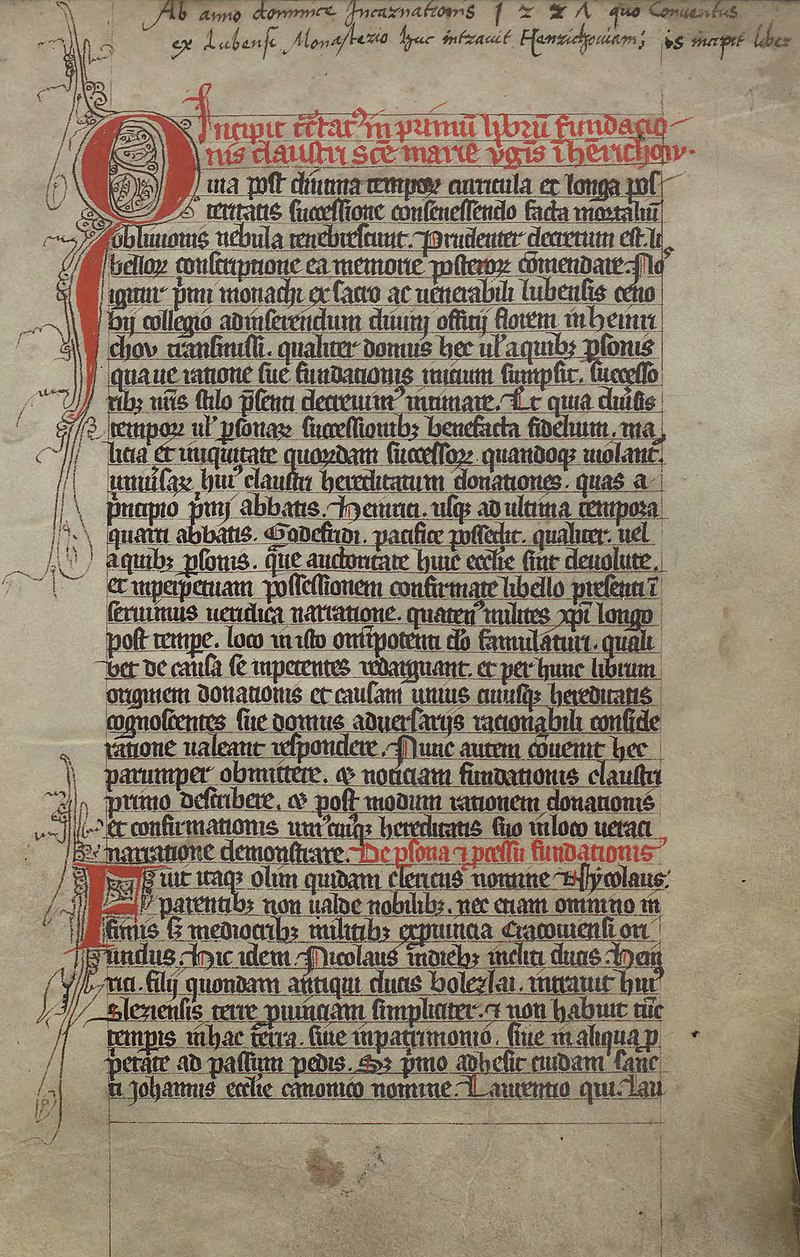 Ab anno dominicæ Incarnationis 1221 quo Conventus
ex Lubensi Monasterio huc intravit Henrichoviam; is incipit liber
Incipit t̄ctat⁹ in primū librū fundacio
nis claustri Sc̄e marie v̾gīs ī herichow.
Quia post diutina tempoꝝ curricula et longa pos
teritatis successione consenessendo facta mortaliū
obliuionis nebula tenebrescunt. Prudenter decretum est. li
belloꝝ conscriptione ea memorie posteroꝝ cōmendare. No⁹
igitur p̄mi monachi ex sacro ac uenerabili lubensis ceno
bij collegio ad inserendum diuinj offitij florem in heinri
chov transmissi. qualiter domus hec ul̾ a quibꝫ ꝑsonis
qua ue ratione sue fundationis initium sumpsit. successo
ribꝫ nr̄is stilo p̄senti decreuim⁹ intimare. Et quia diu̾sis
tempoꝝ ul̾ ꝑsonaꝝ successionibꝫ benefacta fidelium. ma
licia et iniquitate quorūdam successoꝝ quandoqꝫ uiolant᷑.
uniu̾saꝝ hui⁹ claustri hereditatum donationes. quas a
p̄ncipio p̄mj abbatis. Heinrici. usqꝫ ad ultima tempora
quarti abbatis. Godefridi. pacifice possedit. qualiter. uel
a quibꝫ ꝑsonis. que auctoritate huic ecclīe sint deuolute.
et inperpetuam possessionem confirmate libello presenti ī
seruimus ueridica narratione. quaten⁹ milites xp̄i longo
post tempe. loco in isto om̄ipotenti dō famulaturi. quali
bet de causa se inpetentes redarguant. et per hunc librum
originem donationis et causam unius cuiusqꝫ hereditatis
cognoscentes sue domus aduersarijs racionabili conside
ratione ualeant respondere. Nunc autem cōuenit hec
parumper obmittere. ⁊ noticiam fundationis claustri
primo describere. ⁊ post modum rationem donationis
et confirmationis uni⁹ cuiꝰqꝫ hereditatis suo in loco ueraci
narratione demonstrare. De ꝑsona ⁊ ꝓcessu fundationis
Fuit itaqꝫ olim quidam clericus nomine Nycolaus.
parentibꝫ non ualde nobilibꝫ. nec etiam omnino in
fimis sꝫ mediocribꝫ militibꝫ ex ꝓuincia Cracouiensi ori
undus. Hic idem. Nicolaus in diebꝫ incliti ducis. Hein
rici. filij quondam antiqui ducis bolezlai. intrauit hui⁹
Sleziensis terre ꝓuinciam simpliciter. ⁊ non habuit tūc
tempis in hac terra. siue in patrimonio. siue in aliqua ꝓ
prietate ad passum pedis. Sꝫ p̄mo adhesit cuidam sanc
ti johannis ecclīe canonico nomine. Laurentio qui. lau